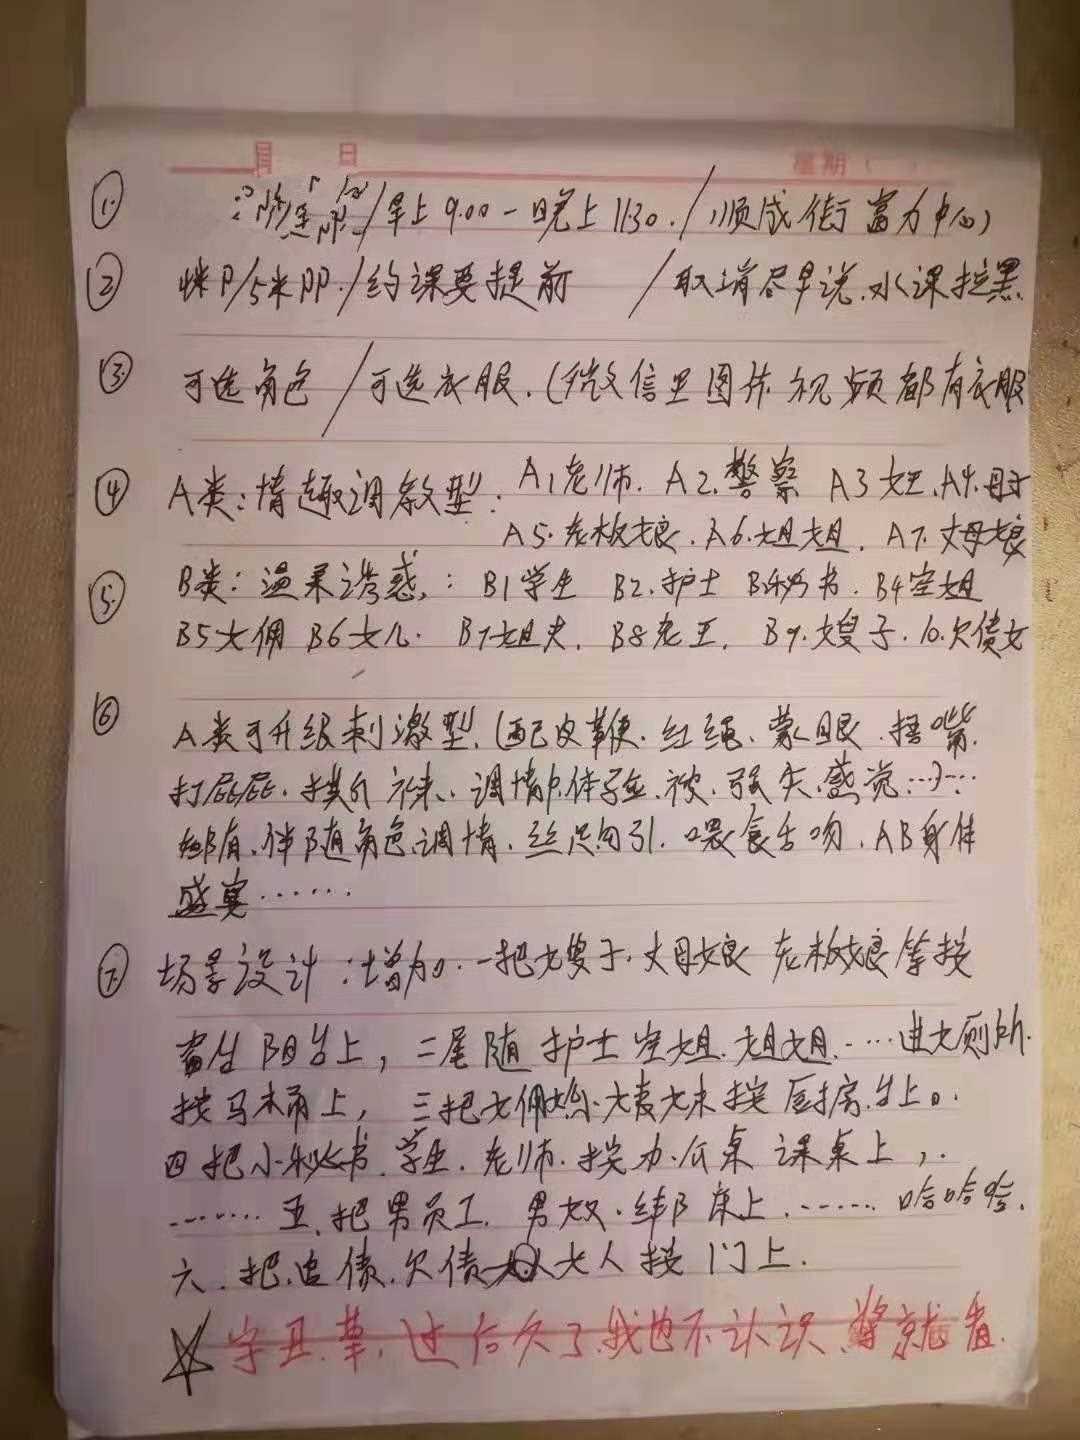 月 日 星期（ ）
① /早上9.00一晚上11:30./顺成街富力中心
② /约课要提前 /取消尽早说.水课拉黑.
③ 可选角色/可选衣服.(微信里图片视频都有衣服
④ A类:情趣调教型: A1老师. A2.警察 A3女王.A4.
A5.老板娘.A6.姐姐. A7.丈母娘
⑤ B类:温柔诱惑.: B1学生 B2.护士 B秘书.B4空姐
B5女佣 B6女儿. B7.姐夫. B8老王. B9.嫂子.10.欠债女
⑥ A类可升级刺激型.(配皮鞭.红绳.蒙眼.捂嘴.
打屁屁. 调情 体验.被.强 感觉…)…
都有.伴随角色调情. 勾引. 舌吻.AB身体
盛宴……
⑦ 场景设计:增加.一把嫂子.丈母娘 老板娘等按
阳台上,二尾随护士空姐.姐姐.……进女厕所.
按马桶上, 三把女佣 按厨房台上.
四把小秘书.学生.老师.按办公桌 课桌上,.
……. 五.把男员工.男奴.绑床上.…… 哈哈哈.
六.把.追债.欠债女人按门上.
☆字丑.草.过后久了.我也不认识.将就看.